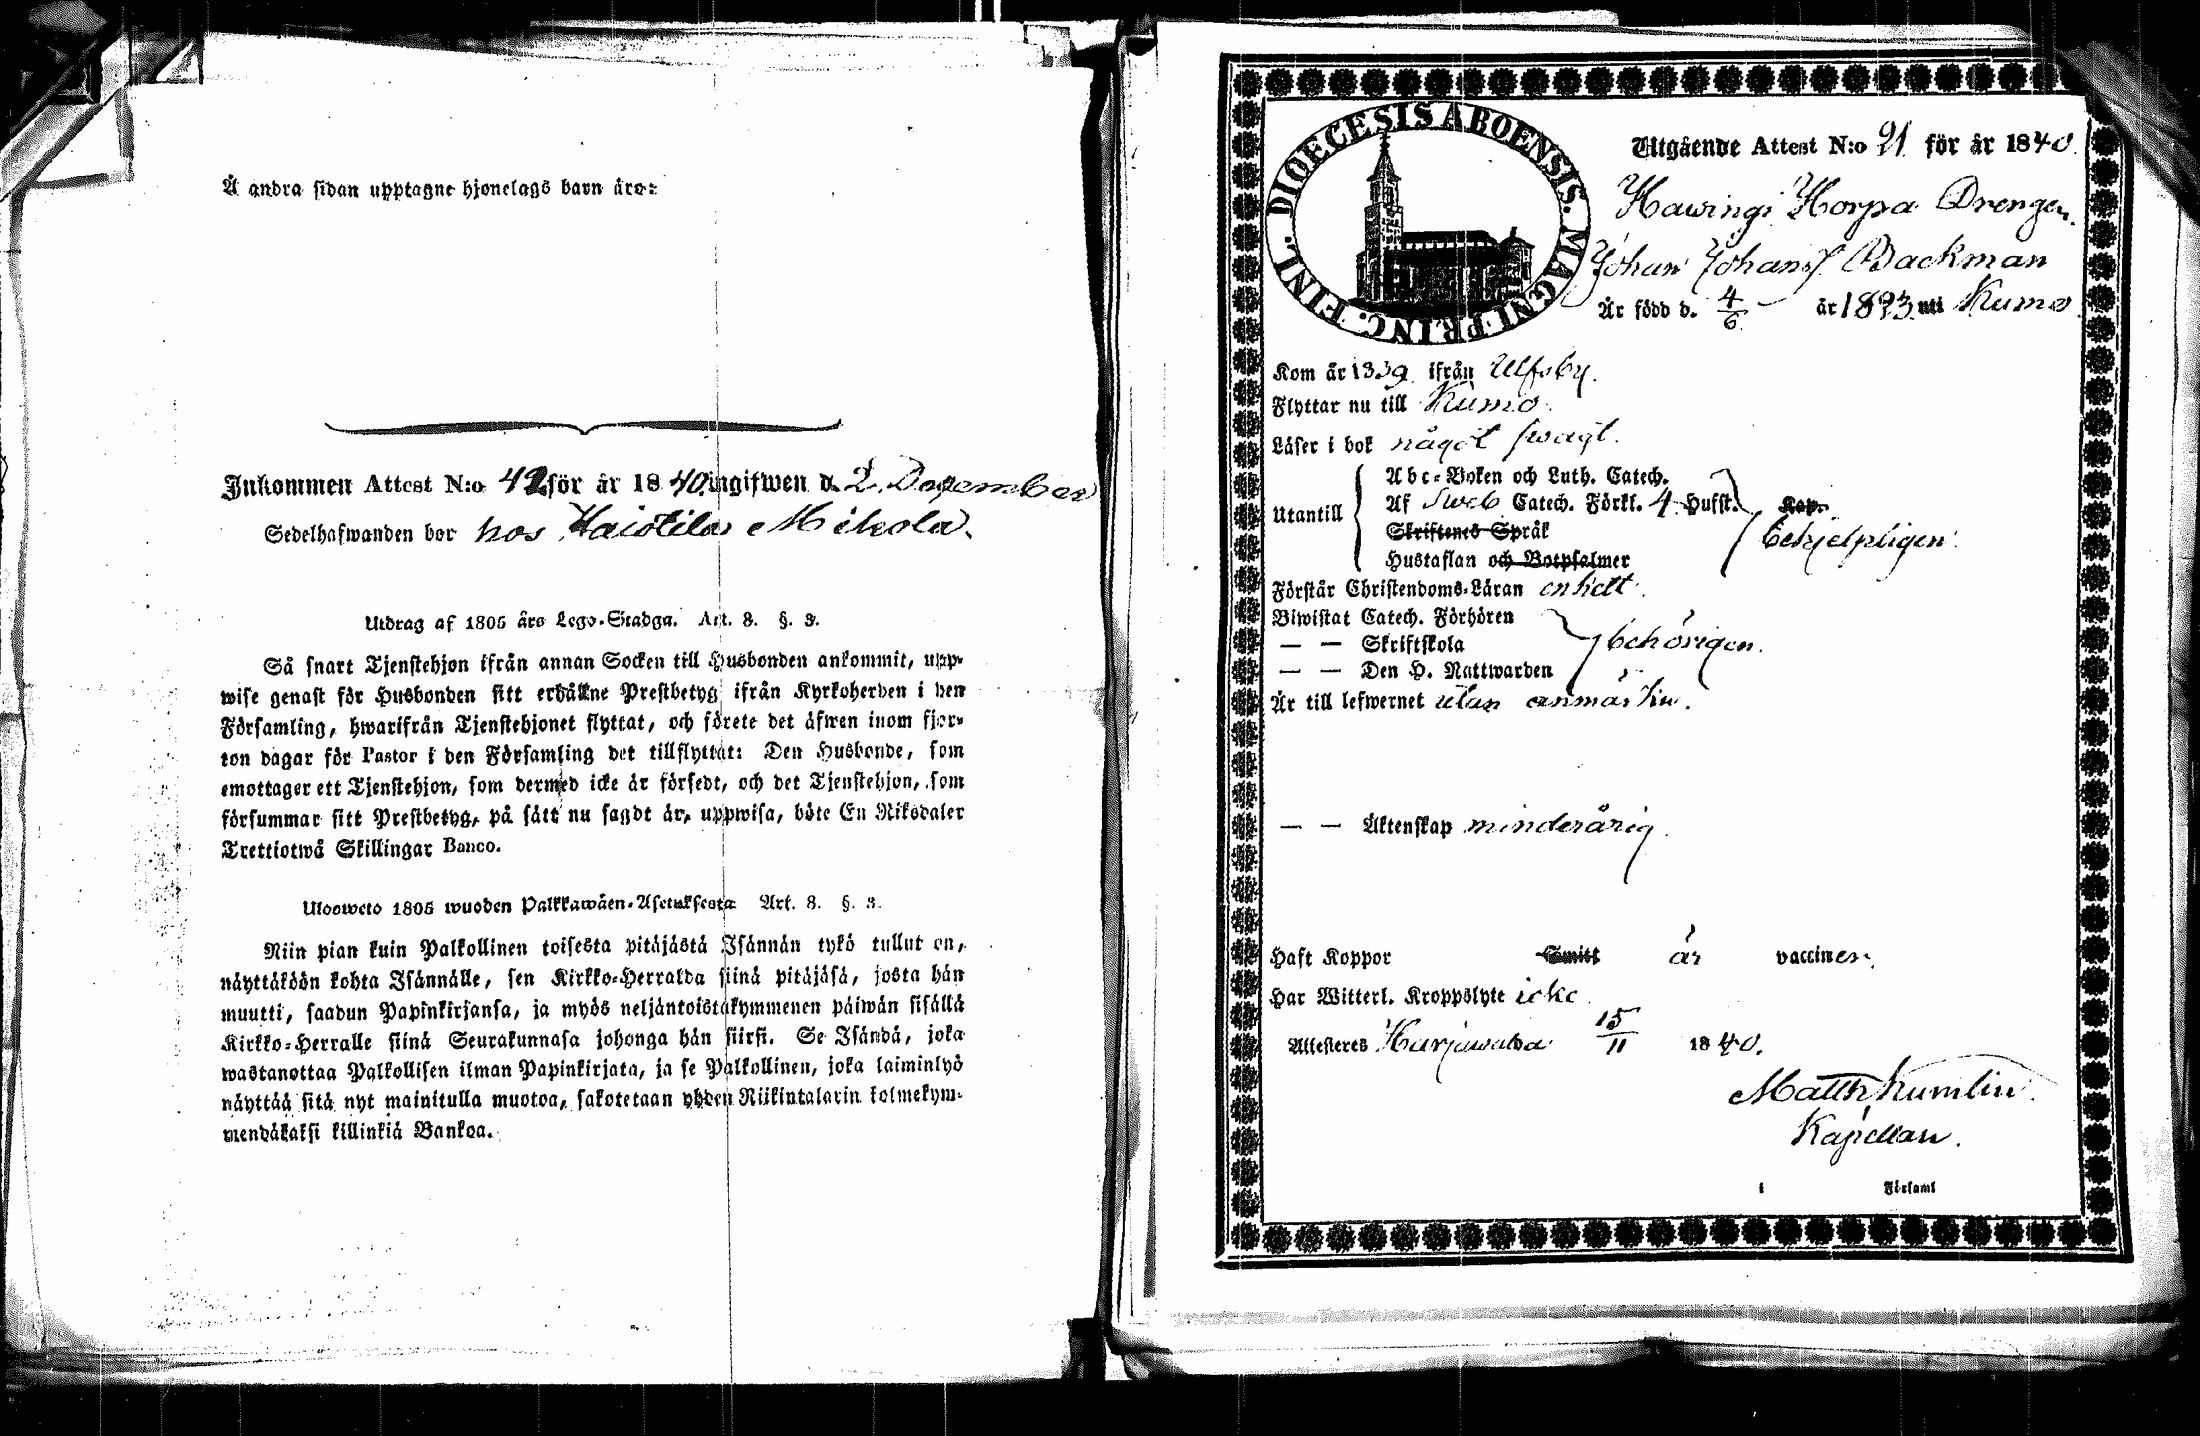 Å andra sidan upptagne hjonelags barn äro:
Inkommen Attest N:o 42 för år 1840 ingifwen d. 2 December
Sedelhafwanden bor hos Haistila Mikola.
Utdrag af 1805 års Lego-Stadga. Art. 8. §. 3.
Så snart Tjenstehjon ifrån annan Socken till Husbonden ankommit, upp-
wise genast för Husbonden sitt erhållne Prestbetyg ifrån Kyrkoherden i den
Församling, hwarifrån Tjenstehjonet flyttat, och förete det äfwen inom fjor-
ton dagar för Pastor i den Församling det tillflyttat: Den Husbonde, som
emottager ett Tjenstehjon, som dermed icke är försedt, och det Tjenstehjon, som
försummar sitt Prestbetyg, på sätt nu sagdt är, uppwisa, böte En Riksdaler
Trettiotwå Skillingar Banco.
Ulosweto 1805 wuoden Palkkawäen-Asetuksesta Art. 8. §. 3.
Niin pian kuin Palkollinen toisesta pitäjästä Isännän tykö tullut on,
näyttäköön kohta Isännälle, sen Kirkko-Herralda siinä pitäjäsä, josta hän
muutti, saadun Papinkirjansa, ja myös neljäntoistakymmenen päiwän sisällä
Kirkko-Herralle siinä Seurakunnasa johonga hän siirsi. Se Isändä, joka
wastanottaa Palkollisen ilman Papinkirjata, ja se Palkollinen, joka laiminlyö
näyttää sitä nyt mainitulla muotoa, sakotetaan yhden Riikintalarin kolmekym-
mendäkaksi killinkiä Bankoa.
DIOECESIS ABOENSIS. MAGNI PRINC. FINL.
Utgående Attest N:o 21 för år 1840.
Hawingi Horpa Drengen
Johan Johanss. Backman
Är född d. 4/6 år 1823 uti Kumo
Kom år 1839 ifrån Ulfsby.
Flyttar nu till Kumo.
Läser i bok något swagt.
Utantill
Abc-Boken och Luth. Catech.
Af Sweb Catech. Förkl. 4 Hufst. Kap.
Skriftenes Språk
Hustaflan och Botpsalmer
behjelpligen
Förstår Christendoms-Läran enkelt.
Biwistat Catech. Förhören
— — Skriftskola behörigen.
— — Den H. Nattwarden
Är till lefwernet utan anmärkn.
— — Äktenskap minderårig.
Haft Koppor Smitt är vacciner.
Har Witterl. Kroppslyte icke
Attesteres Harjawalda 15/11 1840.
Matth Kumlin.
Kapellan.
i Församl